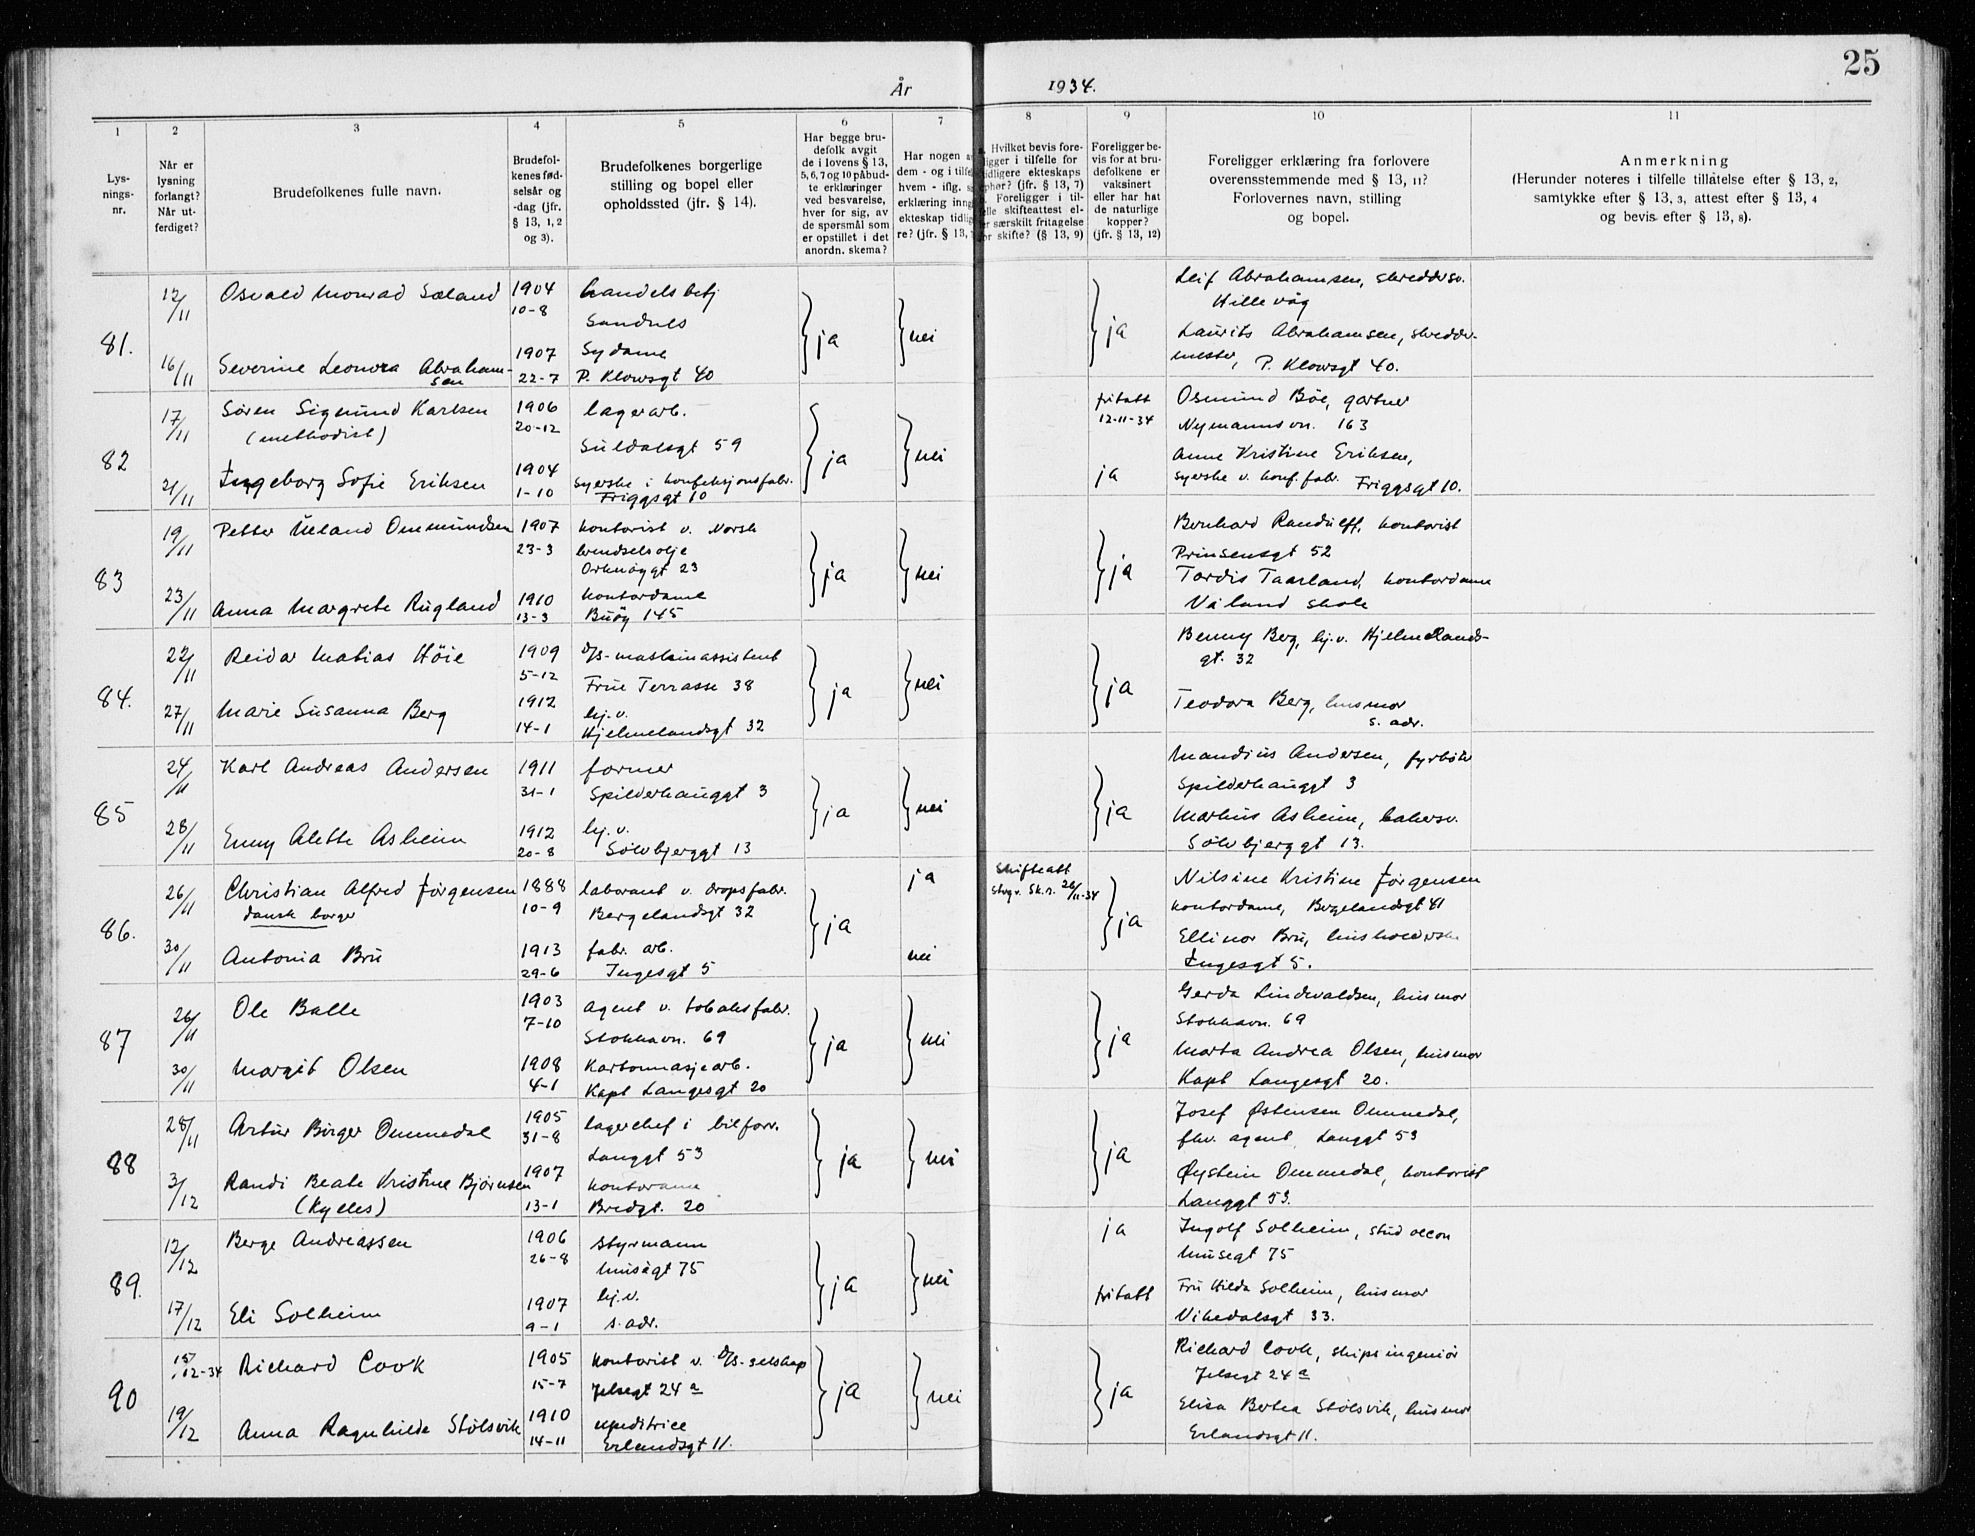 25
År 1934.
1 2 3 4 5 6 7 8 9 10 11
Lys-
nings-
nr.
Når er
lysning
forlangt?
Når ut-
ferdiget?
Brudefolkenes fulle navn.
Brudefol-
kenes fød-
selsår og
-dag (jfr.
§ 13, 1, 2
og 3).
Brudefolkenes borgerlige
stilling og bopel eller
opholdssted (jfr. § 14).
Har begge bru-
defolk avgit
de i lovens § 13,
5, 6, 7 og 10 påbud-
te erklæringer
ved besvarelse,
hver for sig, av
de spørsmål som
er opstillet i det
anordn. skema?
Har nogen a
dem - og i tilfe
hvem - iflg. s
erklæring inng
ekteskap tidlig
re? (jfr. § 13,
Hvilket bevis fore-
ligger i tilfelle for
tidligere ekteskaps
ophør? (jfr. § 13, 7)
Foreligger i til-
felle skifteattest el-
er særskilt fritagelse
for skifte? (§ 13, 9)
Foreligger be-
vis for at bru-
defolkene er
vaksinert
eller har hat
de naturlige
kopper?
(jfr. § 13, 12)
Foreligger erklæring fra forlovere
overensstemmende med § 13, 11?
Forlovernes navn, stilling
og bopel.
Anmerkning
(Herunder noteres i tilfelle tillatelse efter § 13, 2,
samtykke efter § 13, 3, attest efter § 13, 4
og bevis efter § 13, 8).
81. 12/11 Osvald Monrad Sæland 1904 handelsbetj
10-8 Sandnes
ja nei ja
16/11 Severine Leonora Abraham- 1907 Sydame
sen 22-7 P. Klowsgt 40
Leif Abrahamsen, skreddersv.
Hillevåg
Laurits Abrahamsen, skredder-
mester, P. Klowsgt 40.
82 17/11 Søren Sigmund Karlsen 1906 lagerarb.
(methodist) 20-12 Suldalsgt 59
ja nei
21/11 Ingeborg Sofie Eriksen 1904 syerske i konfeksjonsfabr.
1-10 Friggsgt 10
fritatt
12-11-34
ja
Osmund Bøe, gartner
Nymannsvn. 163
Anne Kristine Eriksen,
syerske v. konf. fabr. Friggsgt 10.
83 19/11 Petter Ueland Ommundsen 1907 kontorist v. Norsk
23-3 brendselsolje
Orknøygt 23
ja nei ja
23/11 Anna Margrete Rugland 1910 kontordame
13-3 Buøy 145
Bernhard Randulff, kontorist
Prinsensgt 52
Tordis Taarland, kontordame
Våland skole
84. 22/11 Reidar Matias Höie 1909 D/S-maskinassistent
5-12 Frue Terrasse 38
ja nei ja
27/11 Marie Susanna Berg 1912 hj.v.
14-1 Hjelmelandsgt 32
Benny Berg, hj.v. Hjelmelands-
gt. 32
Teodora Berg, husmor
s. adr.
85 24/11 Karl Andreas Andersen 1911 former
31-1 Spilderhauggt 3
ja nei ja
28/11 Emmy Alette Asheim 1912 hj.v.
20-8 Sølvbjerggt 13
Mandius Andersen, fyrbøter
Spilderhauggt 3
Markus Asheim, bakersv.
Sølvbjerggt 13.
86. 26/11 Christian Alfred Jörgensen 1888 laborant v. dropsfabr.
dansk borger 10-9 Bergelandsgt 32
ja ja
Skifteatt
Stvgr. Sk.r. 26/11-34
ja
30/11 Antonia Bru 1913 fabr. arb.
29-6 Ingesgt 5
nei
Nilsine Kristine Jörgensen
kontordame, Bergelandsgt 41
Ellinor Bru, husholderske
Ingesgt 5.
87 26/11 Ole Balle 1903 agent v. tobaksfabr.
7-10 Stokkavn. 69
ja nei ja
30/11 Margit Olsen 1908 Kartonnasjearb.
4-1 Kapt Langesgt 20
Gerda Lindvaldsen, husmor
Stokkavn. 69
Marta Andrea Olsen, husmor
Kapt Langesgt 20.
88 28/11 Artur Birger Ommedal 1905 lagerchef i bilforr.
31-8 Langgt 53
ja nei ja
3/12 Randi Beate Kristine Bjørnsen 1907 kontordame
(Kylles) 13-1 Bredgt. 20
Josef Østensen Ommedal,
fhv. agent Langgt 53
Øystein Ommedal, kontorist
Langgt 53.
89. 12/12 Berge Andreassen 1906 styrmann
26-8 Musegt 75
ja nei
17/12 Eli Solheim 1907 hj.v.
9-1 s. adr.
ja
fritatt
Ingolf Solheim, stud oecon
Musegt 75
Fru Hilda Solheim, husmor
Vikedalsgt 33.
90 15/12-34 Richard Cook 1905 kontorist v. D/S-selskap
15-7 Jelsegt 24 a
ja nei ja
19/12 Anna Ragnhilde Stölsvik 1910 expeditrice
14-11 Erlandsgt 11.
Richard Cook, skipsingeniör
Jelsegt 24 a
Elisa Bertea Stölsvik, husmor
Erlandsgt 11.